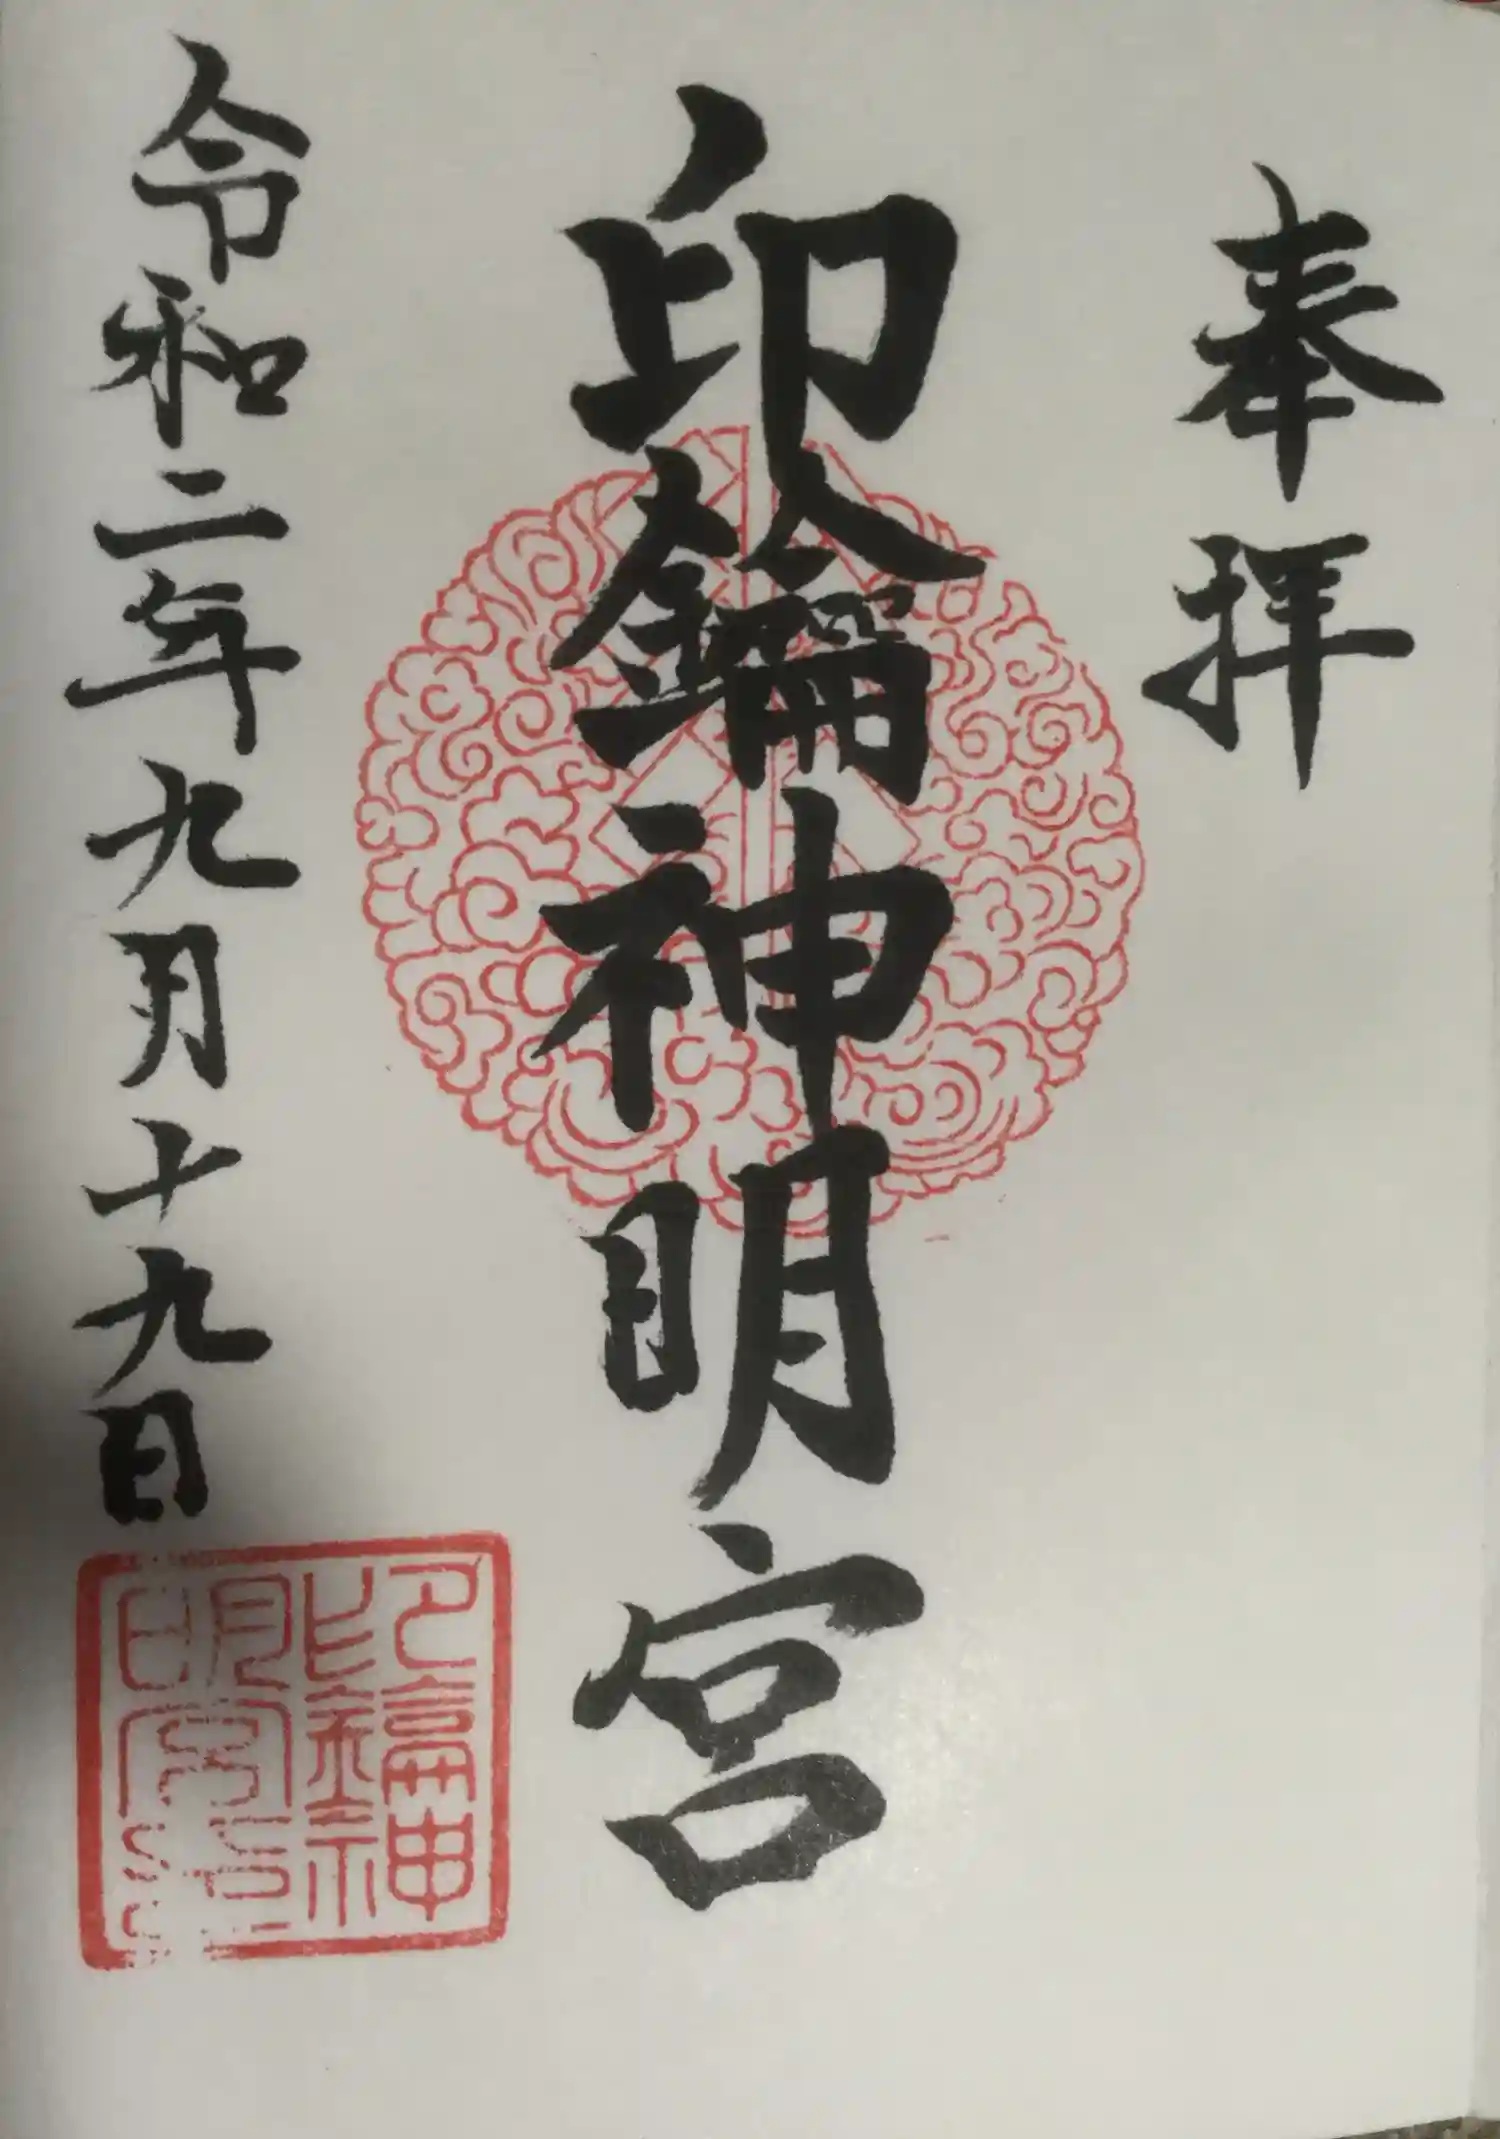 奉拝
印鑰神明宮
令和二年九月十九日
印鑰神
明宮